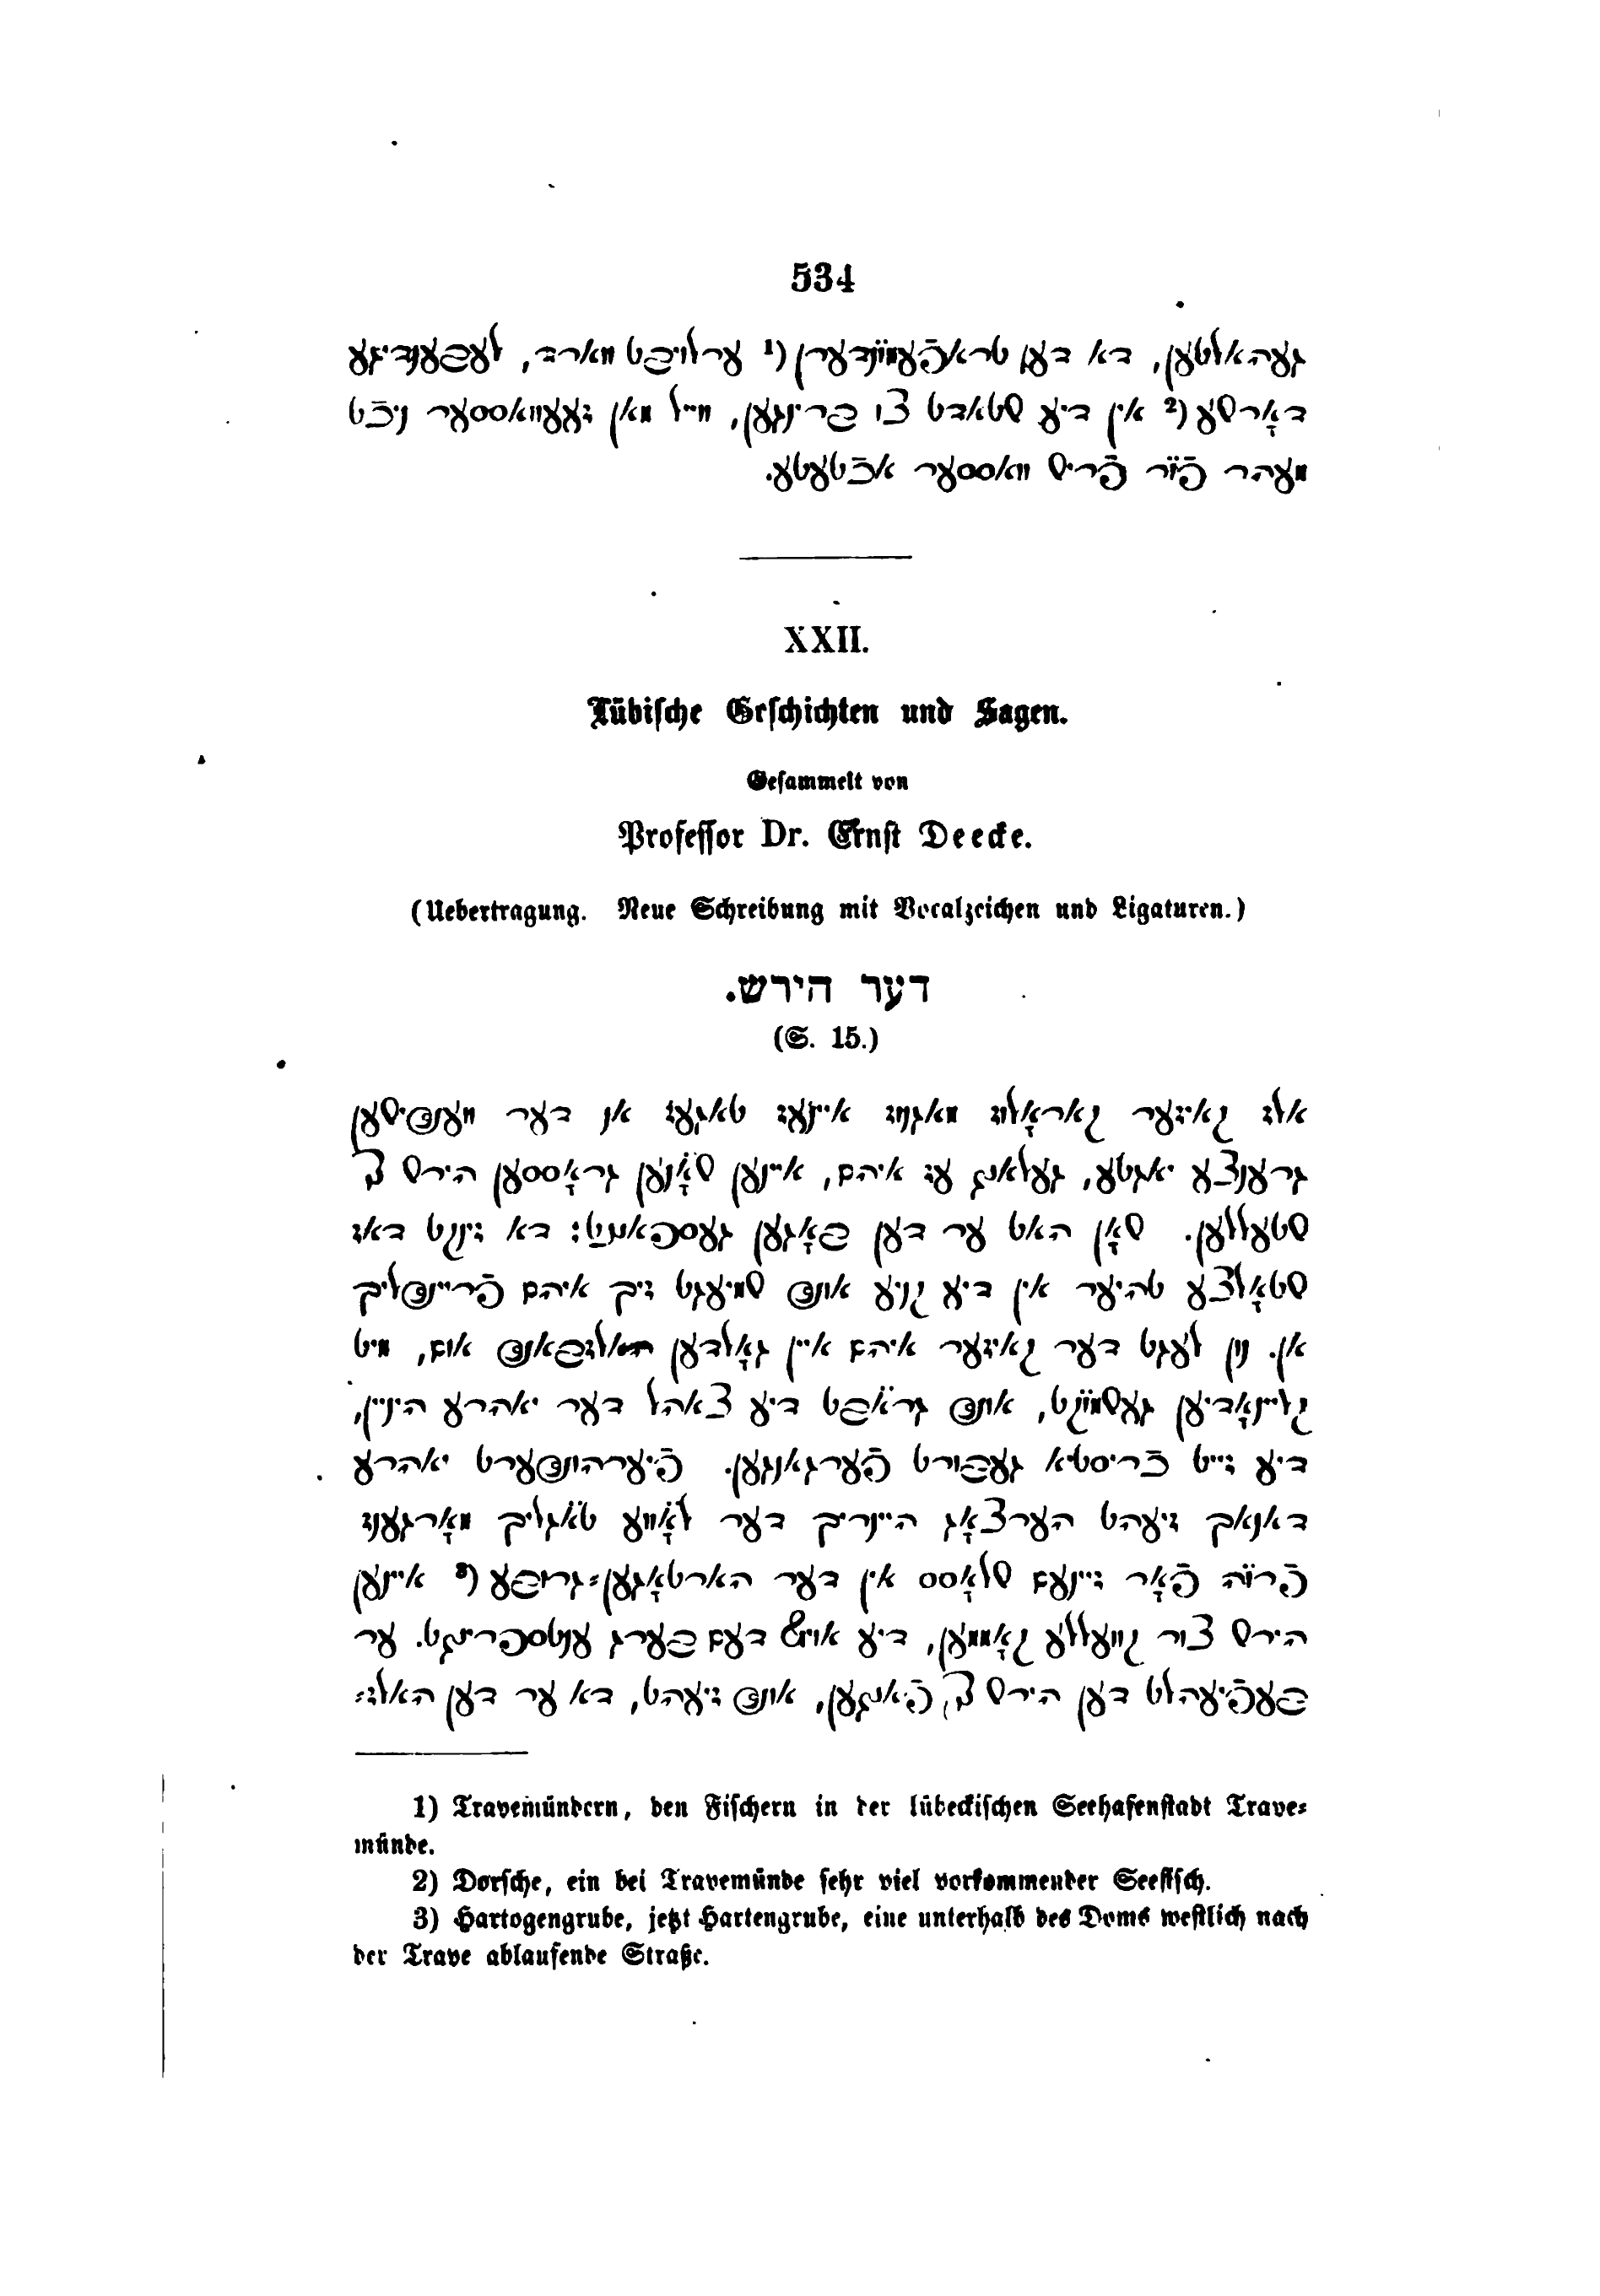 534
געהאלטען, דא דען טראפֿעמײנדערן (1 ערלויבט ווארד, לעבענדיגע
דאָרשע (2 אין דיע שטאדט צו ברינגען, ווייל מאן זעעוואססער ניכֿט
מעהר פֿיר פֿריש וואססער אכֿטעטע.
XXII.
Lübische Geschichten und Sagen.
Gesammelt von
Professor Dr. Ernst Deecke.
(Uebertragung. Neue Schreibung mit Vocalzeichen und Ligaturen.)
דער הירש.
(S. 15.)
אלז קאיזער קאראָלוז מאגנוז איינעז טאגעז אן דער ווענדישען
גרענצע יאגטע, געלאנג עז איהם, איינען שאָ̈נען גראָססען הירש צו
שטעללען. שאָן האט ער דען באָגען געספאננט: דא זינקט דאז
שטאָלצע טהיער אין דיע קניע אונד שמיעגט זיך איהם פֿריינדליך
אן. נון לעגט דער קאיזער איהם איין גאָלדען האלזבאנד אום, מיט
קליינאָדיען געשמי̈קט, אונד גרא̈בט דיע צאהל דער יאהרע היניין,
דיע זייט כֿריסטיא געבורט פֿערגאנגען. פֿיערהונדערט יאהרע
דאנאך זיעהט הערצאָג היינריך דער לאָ̈ווע טא̈גליך מאָרגענז
פֿרי̈ה פֿאָר זיינעם שלאָסס אין דער הארטאָגען=גרובע (3 איינען
הירש צור קוועללע קאָממען, דיע אויס דעם בערג ענטספרינגט. ער
בעפֿיעהלט דען הירש צו פֿאנגען, אונד זיעהט, דא ער דען האלז=
1) Travemündern, den Fischern in der lübeckischen Seehafenstadt Trave=
münde.
2) Dorsche, ein bei Travemünde sehr viel vorkommender Seefisch.
3) Hartogengrube, jetzt Hartengrube, eine unterhalb des Doms westlich nach
der Trave ablaufende Straße.